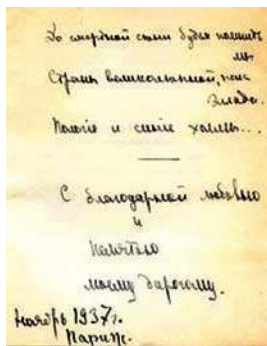 До смертной сени будем помнить
мы
Страны великолепной,
Пологие и синие холмы...
С благодарной любовью
и
памятью
моему дорогому.
Ноябрь 1937 г.
Париж.